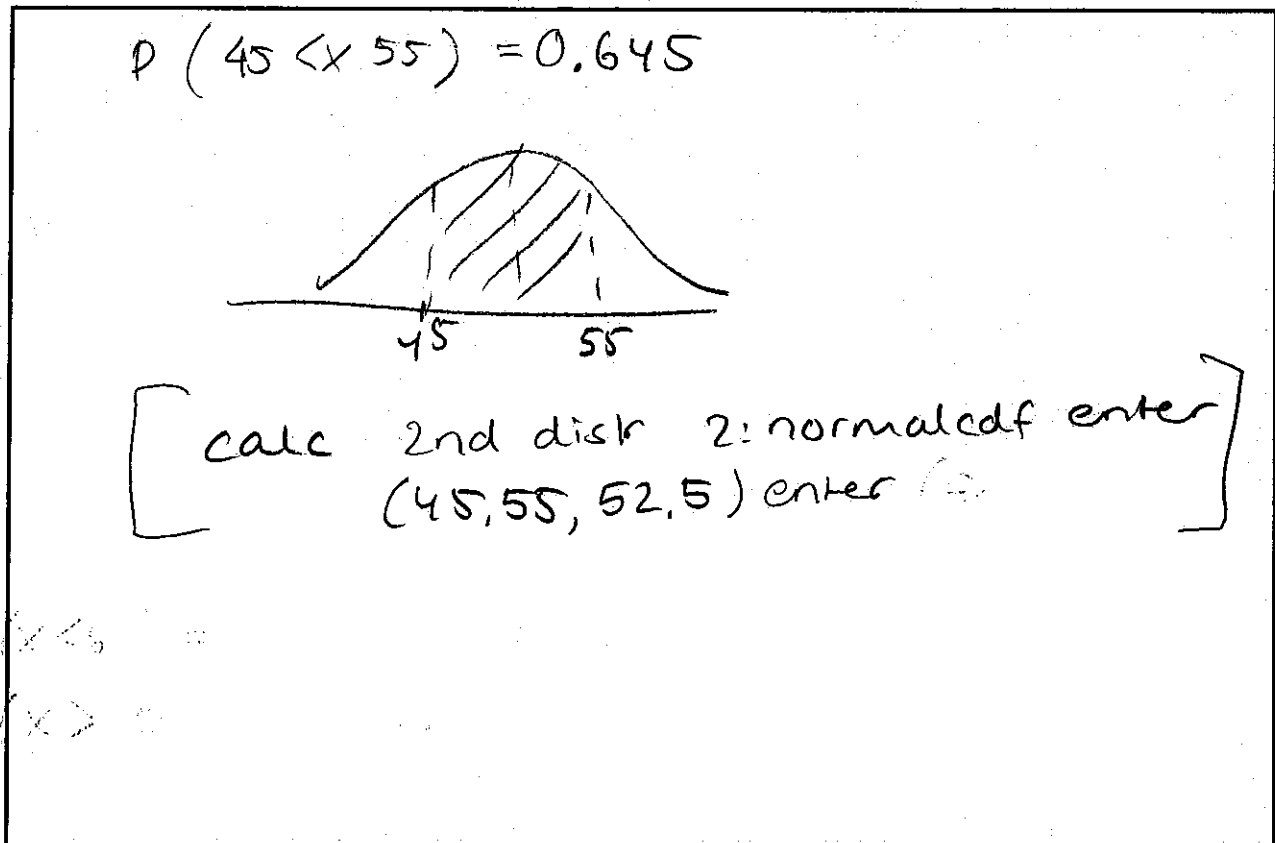 P ( 45 <x 55) = 0.645
45 55
calc 2nd distr 2: normalcdf enter
(45,55, 52,5) enter
x <
x >